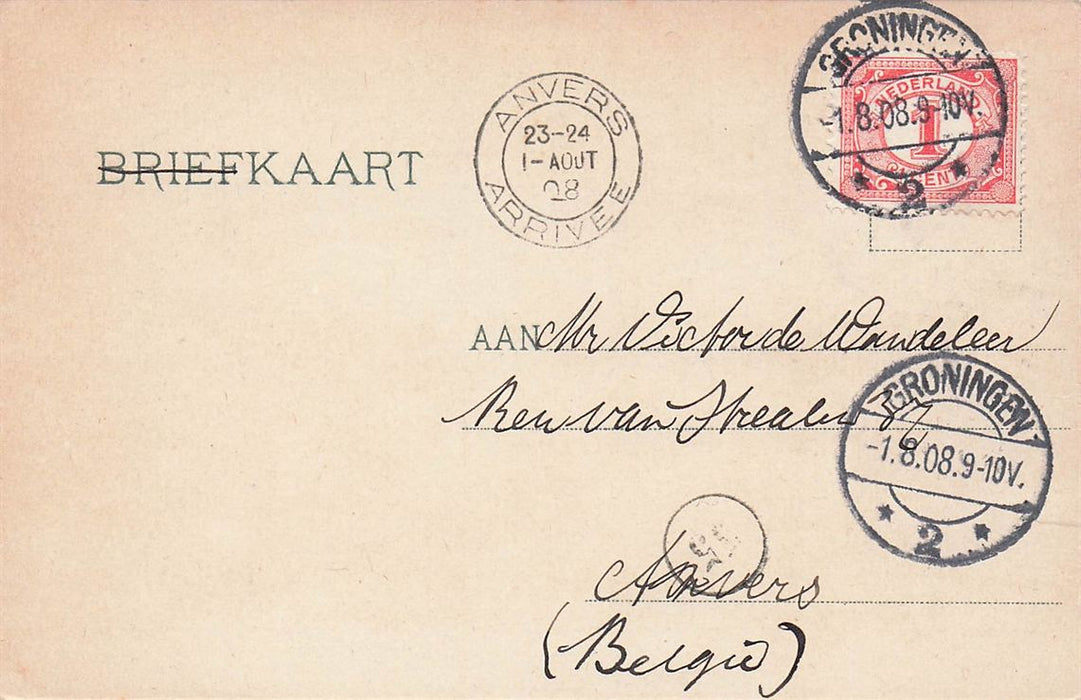 GRONINGEN
-1.8.08.9-10V.
2
NEDERLAND
1
CENT
ANVERS
23-24
1-AOUT
08
ARRIVEE
BRIEFKAART
AAN Mr Victor de Wandeleer
Rue van Straelen 87
GRONINGEN
-1.8.08.9-10V.
2
Anvers
(België)